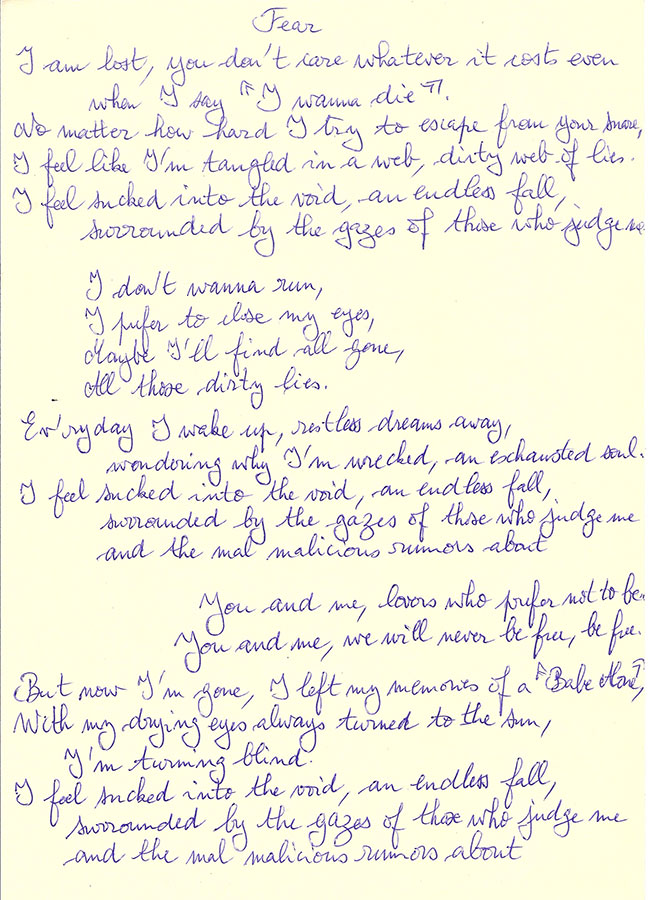 Fear
I am lost, you don't care whatever it costs even
when I say "I wanna die".
No matter how hard I try to escape from your snare,
I feel like I'm tangled in a web, dirty web of lies.
I feel sucked into the void, an endless fall,
surrounded by the gazes of those who judge me
I don't wanna run,
I prefer to close my eyes,
Maybe I'll find all gone,
All those dirty lies.
Ev'ryday I wake up, restless dreams away,
wondering why I'm wrecked, an exchausted soul.
I feel sucked into the void, an endless fall,
surrounded by the gazes of those who judge me
and the mal malicious rumors about
You and me, lovers who prefer not to be.
You and me, we will never be free, be free.
But now I'm gone, I left my memories of a "Babe Alone",
With my drying eyes always turned to the sun,
I'm turning blind.
I feel sucked into the void, an endless fall,
surrounded by the gazes of those who judge me
and the mal malicious rumors about